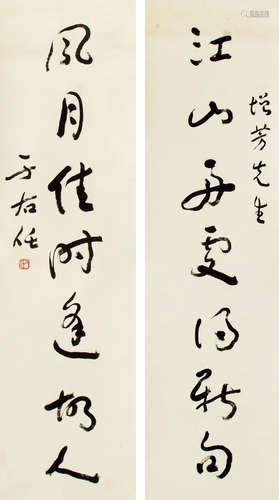 增芳先生
江山處得新句
風月佳時逢故人
于右任